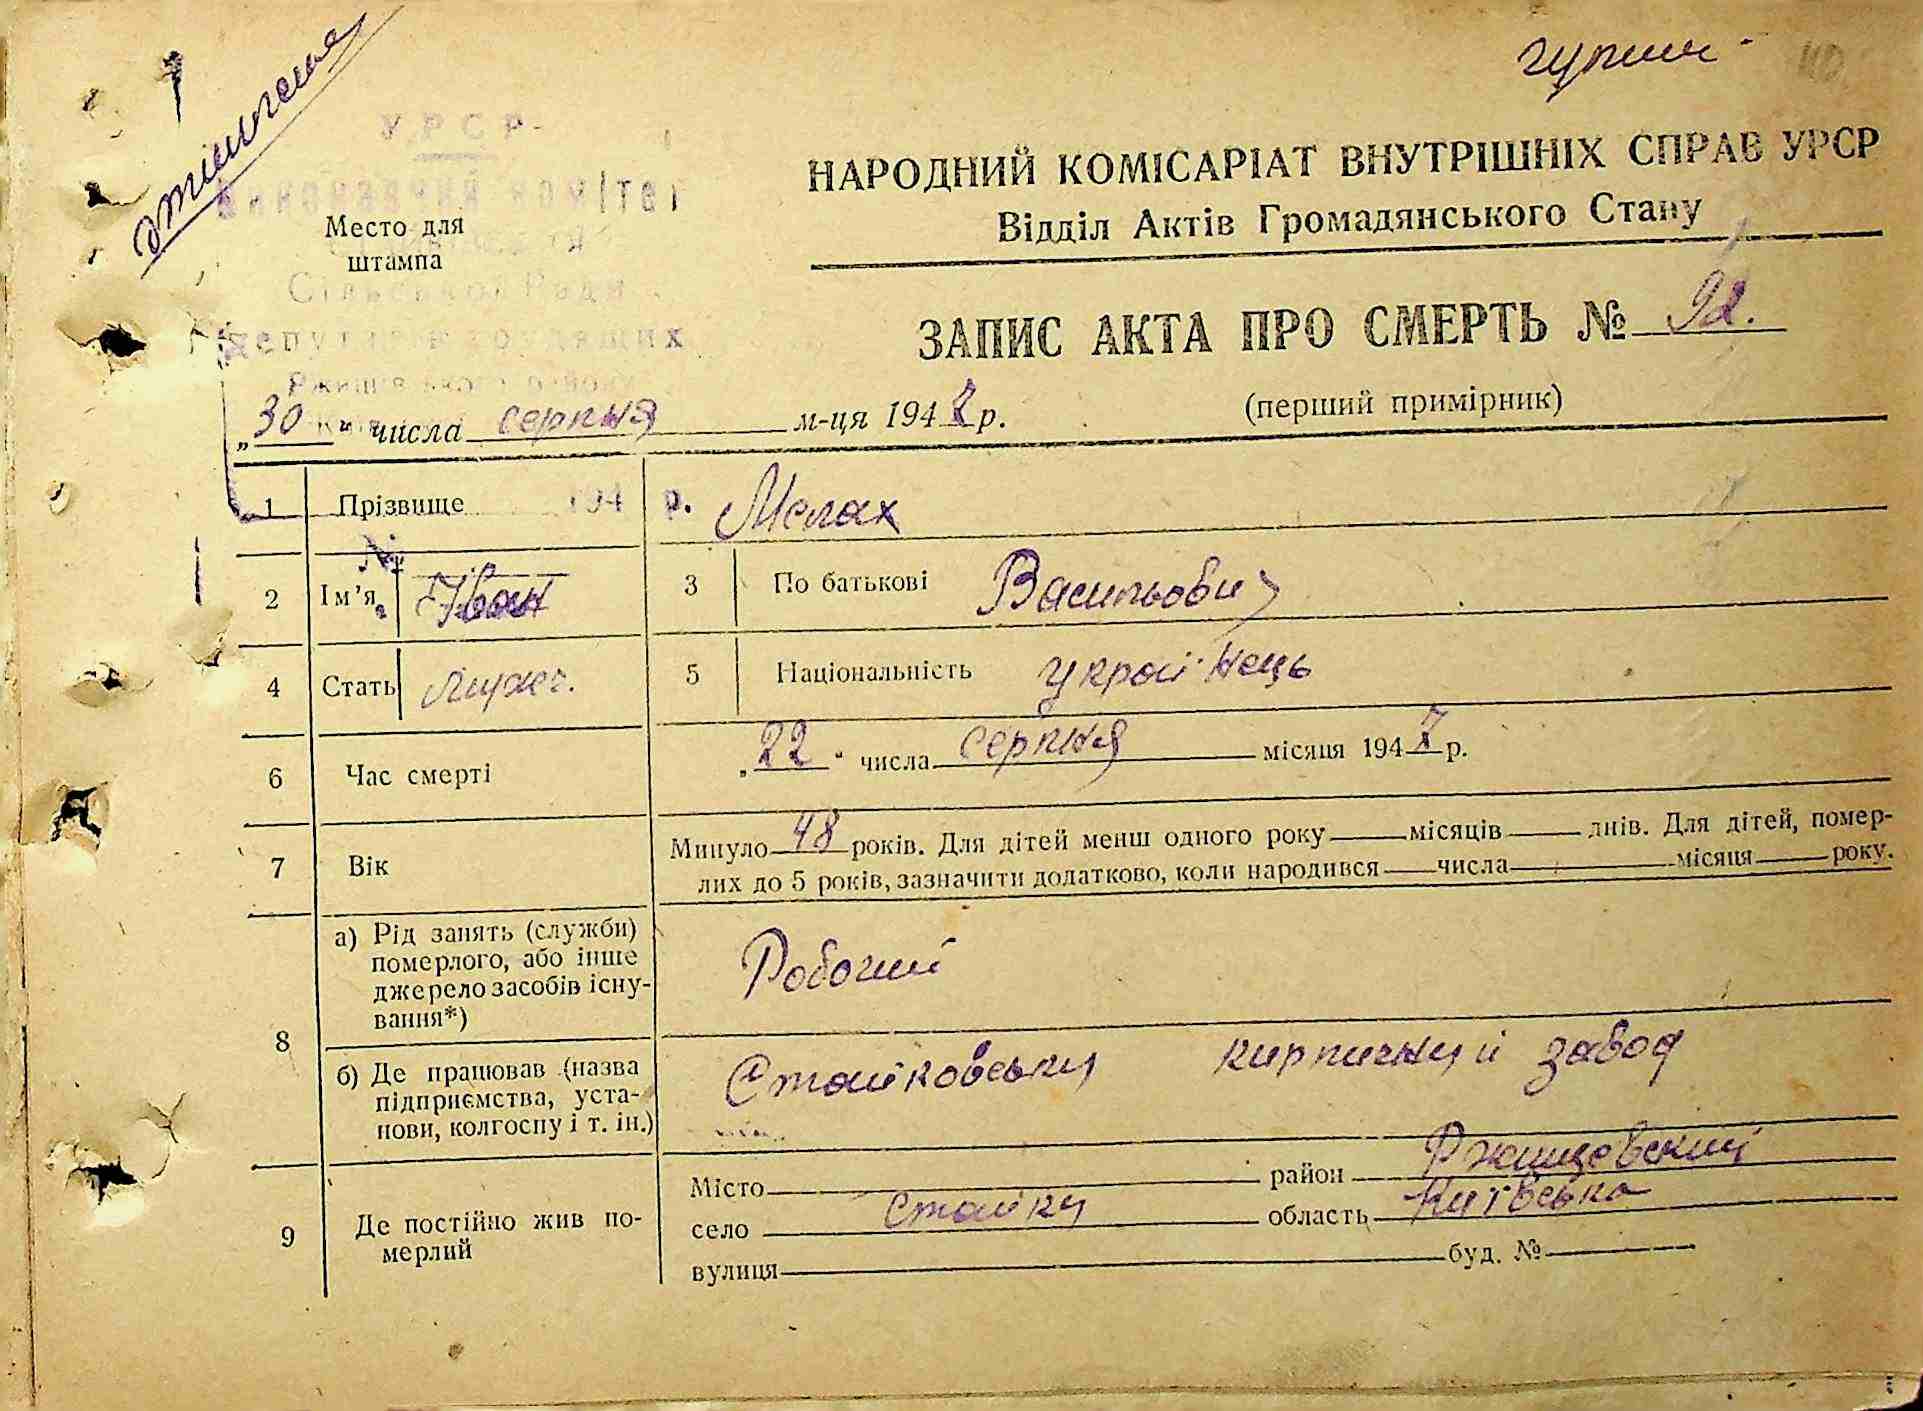 УРСР
Виконавчий комітет
Место для
штампа
Сільської Ради
депутатів трудящих
Ржищівського району
НАРОДНИЙ КОМІСАРІАТ ВНУТРІШНІХ СПРАВ УРСР
Відділ Актів Громадянського Стану
ЗАПИС АКТА ПРО СМЕРТЬ № 92.
(перший примірник)
„30" числа серпня м-ця 1947 р.
1 Прізвище 194 р. Мелах
2 Ім'я Іван 3 По батькові Васильович
4 Стать Мужч. 5 Національність Украй-нець
6 Час смерті „22" числа серпня місяця 1947 р.
7 Вік Минуло 48 років. Для дітей менш одного року місяців днів. Для дітей, помер-
лих до 5 років, зазначити додатково, коли народився числа місяця року.
8 а) Рід занять (служби)
померлого, або інше
джерело засобів існу-
вання*)
Робочий
б) Де працював (назва
підприємства, уста-
нови, колгоспу і т. ін.)
Стайковськи кирпичний завод
9 Де постійно жив по-
мерлий
Місто район Ржищевский
село Стайки область Киівська
вулиця буд. №